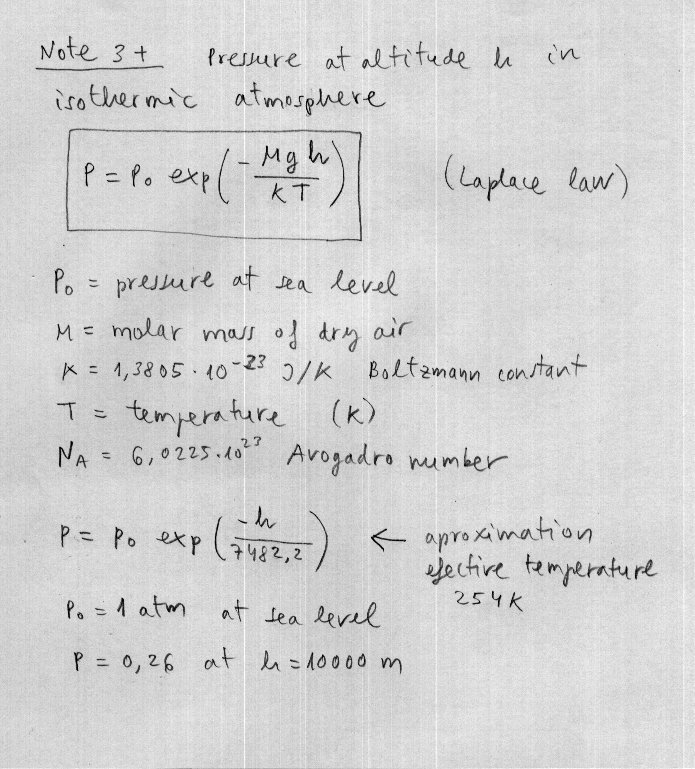 Note 3+ Pressure at altitude h in
isothermic atmosphere
P = P₀ exp(-Mgh/KT) (Laplace law)
P₀ = pressure at sea level
M = molar mass of dry air
K = 1,3805·10⁻²³ J/K Boltzmann constant
T = temperature (K)
N_A = 6,0225·10²³ Avogadro number
P = P₀ exp(-h/7482,2) ← aproximation
efective temperature
254K
P₀ = 1 atm at sea level
P = 0,26 at h = 10000 m